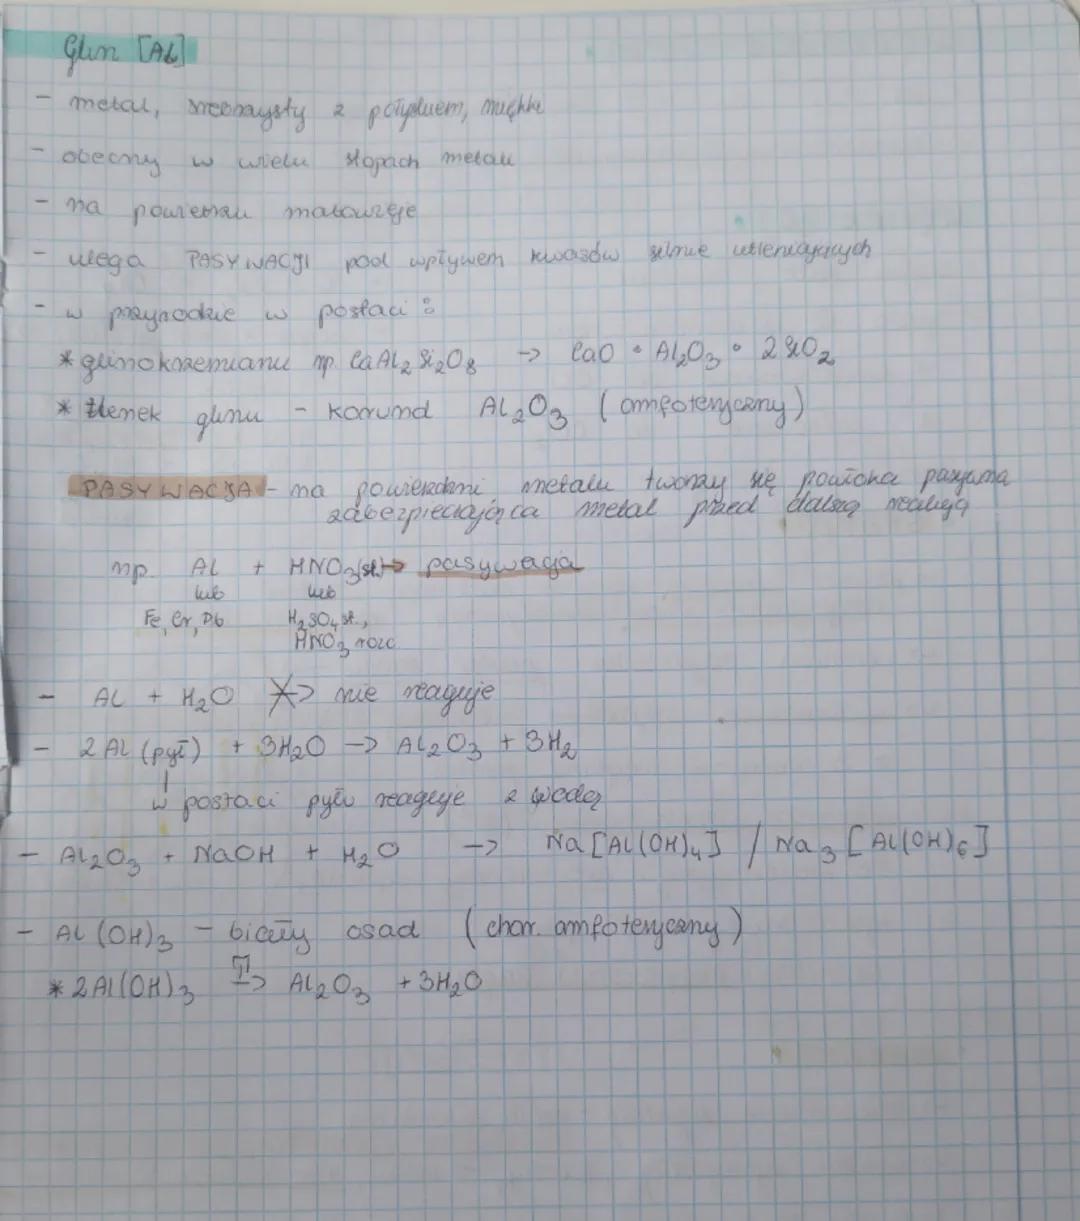 Glin [Al]
- metal, srebrzysty z połyskiem, miękki
- obecny w wielu stopach metali
- na powietrzu matowieje
- ulega PASYWACJI pod wpływem kwasów silnie utleniających
- w przyrodzie w postaci :
* glinokrzemianu np. CaAl₂Si₂O₈ -> CaO • Al₂O₃ • 2SiO₂
* tlenek glinu - korund Al₂O₃ (amfoteryczny)
PASYWACJA - na powierzchni metalu tworzy się powłoka pasywna
zabezpieczająca metal przed dalszą reakcją
np. Al + HNO₃(st.) -> pasywacja
lub lub
Fe, Cr, Pb H₂SO₄ st.,
HNO₃ rozc.
- Al + H₂O -/> nie reaguje
- 2Al (pył) + 3H₂O -> Al₂O₃ + 3H₂
w postaci pyłu reaguje z wodą
- Al₂O₃ + NaOH + H₂O -> Na[Al(OH)₄] / Na₃[Al(OH)₆]
- Al(OH)₃ - biały osad (char. amfoteryczny)
* 2Al(OH)₃ T-> Al₂O₃ + 3H₂O